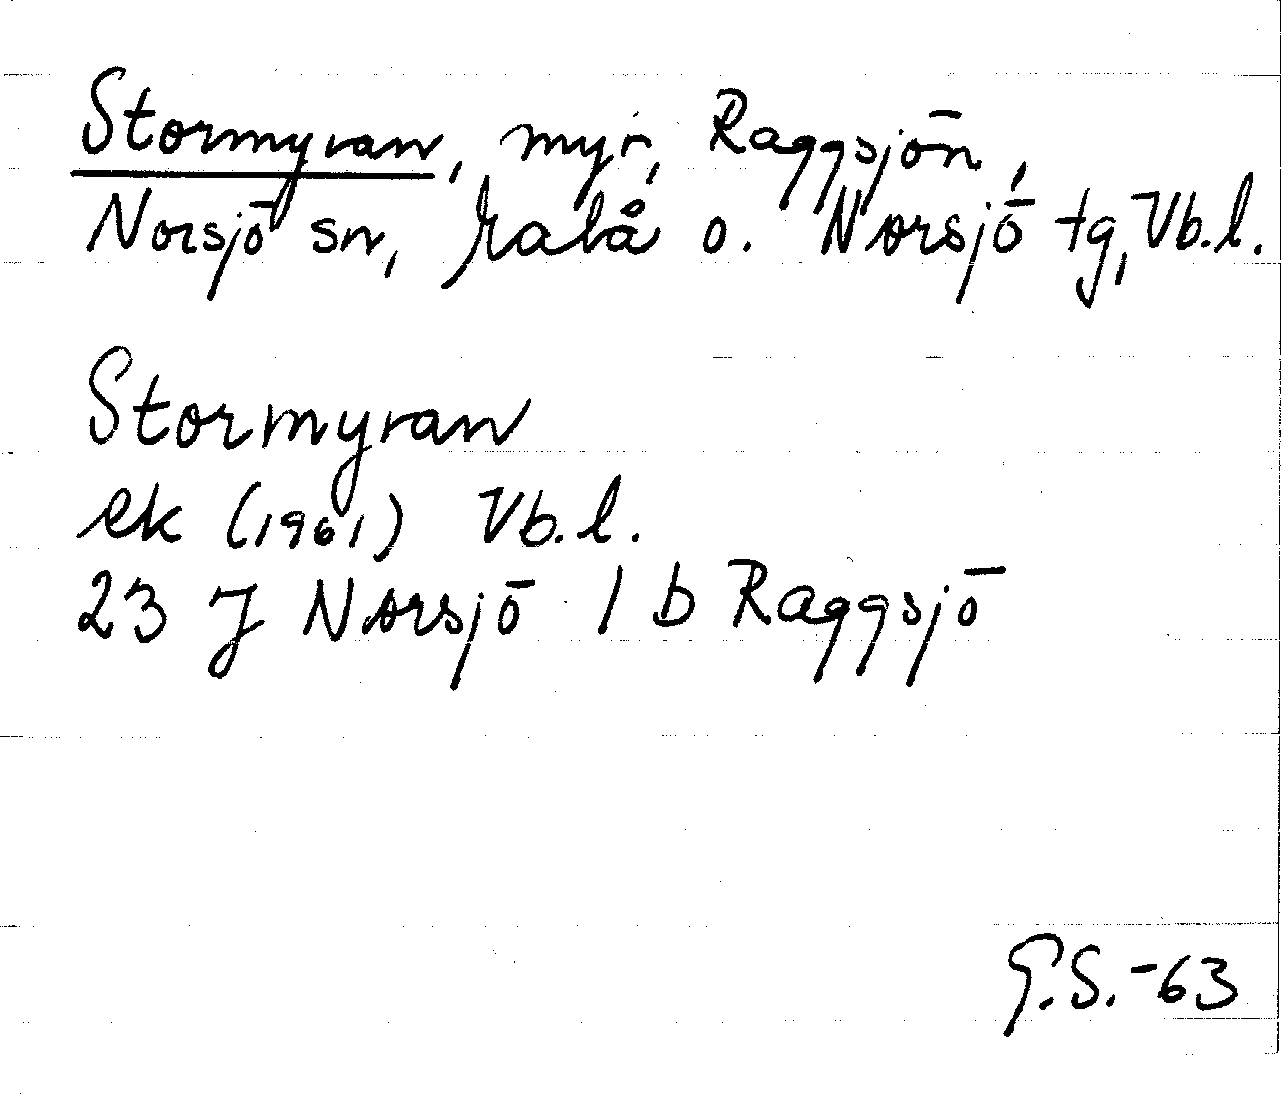 Stormyran, myr, Raggsjön,
Norsjö sn, Malå o. Norsjö tg, Vb.l.
Stormyran
ek (1961) Vb.l.
23 J Norsjö 1 b Raggsjö
G.S.-63